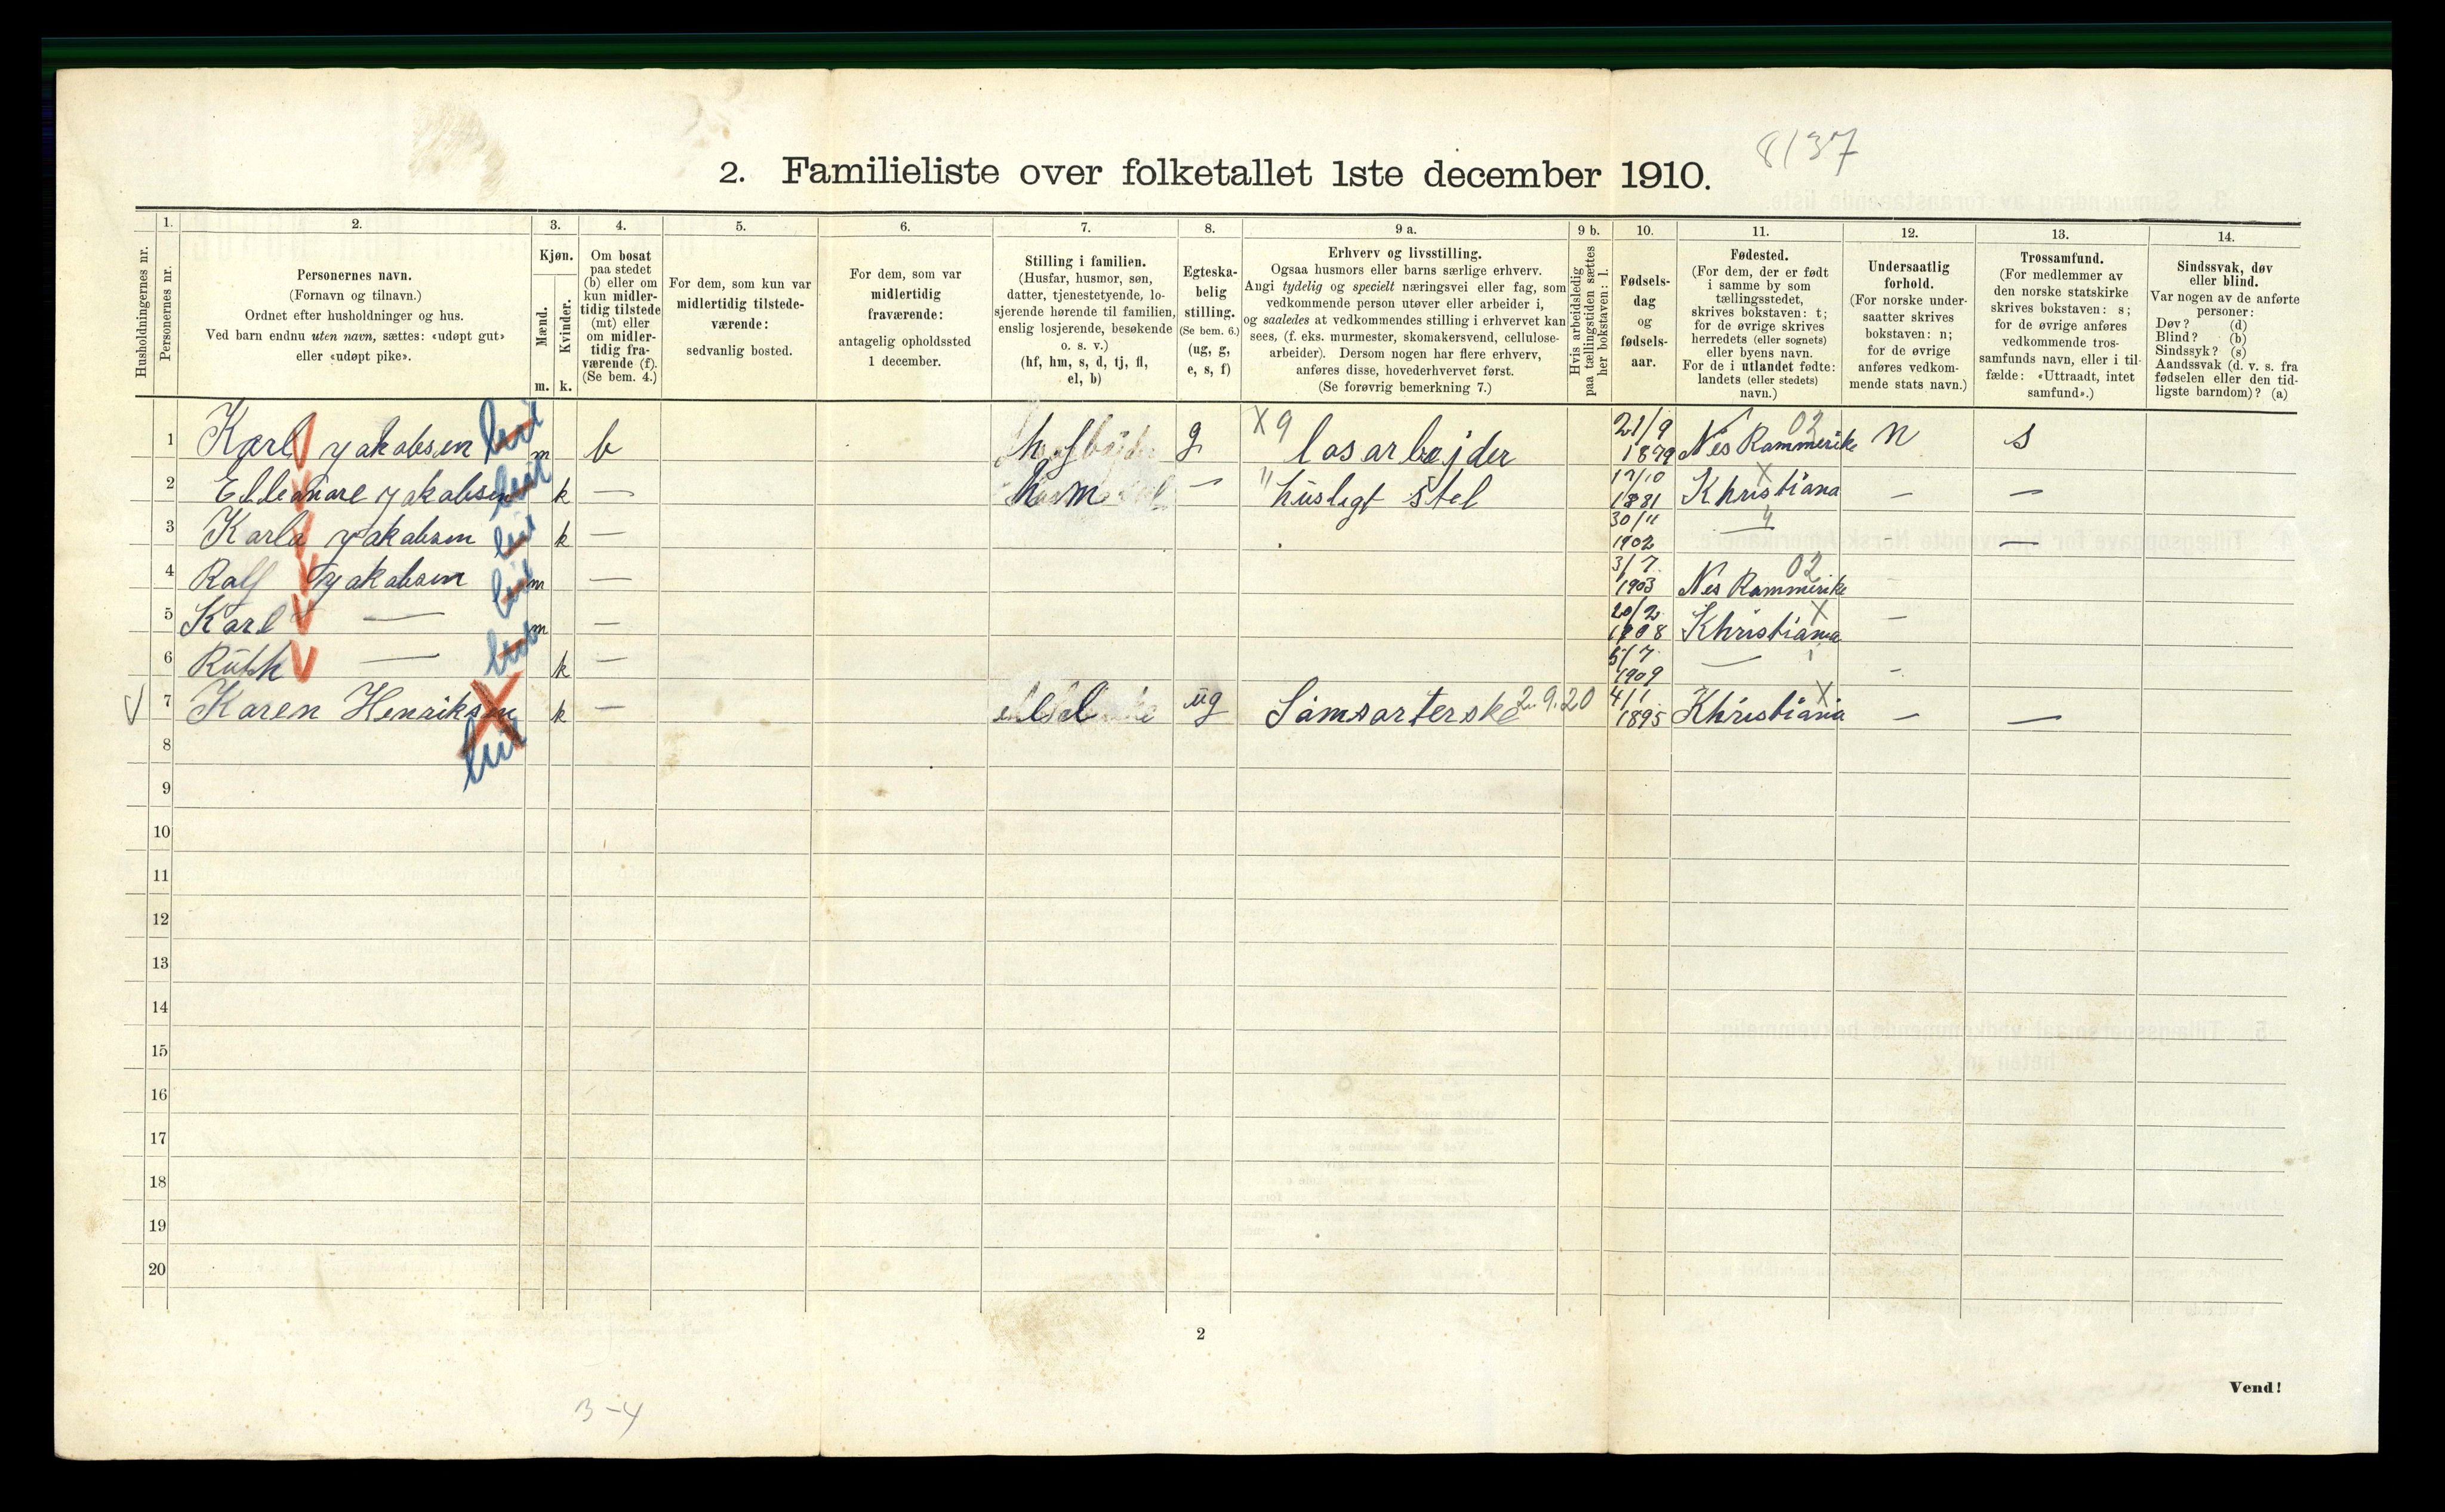 8/37
2. Familieliste over folketallet 1ste december 1910.
Husholdningernes nr.
1.
Personernes nr.
2.
Personernes navn.
(Fornavn og tilnavn.)
Ordnet efter husholdninger og hus.
Ved barn endnu uten navn, sættes: «udøpt gut»
eller «udøpt pike».
3.
Kjøn.
Mænd.
Kvinder.
m. k.
4.
Om bosat
paa stedet
(b) eller om
kun midler-
tidig tilstede
(mt) eller
om midler-
tidig fra-
værende (f).
(Se bem. 4.)
5.
For dem, som kun var
midlertidig tilstede-
værende:
sedvanlig bosted.
6.
For dem, som var
midlertidig
fraværende:
antagelig opholdssted
1 december.
7.
Stilling i familien.
(Husfar, husmor, søn,
datter, tjenestetyende, lo-
sjerende hørende til familien,
enslig losjerende, besøkende
o. s. v.)
(hf, hm, s, d, tj, fl,
el, b)
8.
Egteska-
belig
stilling.
(Se bem. 6.)
(ug, g,
e, s, f)
9 a.
Erhverv og livsstilling.
Ogsaa husmors eller barns særlige erhverv.
Angi tydelig og specielt næringsvei eller fag, som
vedkommende person utøver eller arbeider i,
og saaledes at vedkommendes stilling i erhvervet kan
sees, (f. eks. murmester, skomakersvend, cellulose-
arbeider). Dersom nogen har flere erhverv,
anføres disse, hovederhvervet først.
(Se forøvrig bemerkning 7.)
9 b.
Hvis arbeidsledig
paa tællingstiden sættes
her bokstaven: l.
10.
Fødsels-
dag
og
fødsels-
aar.
11.
Fødested.
(For dem, der er født
i samme by som
tællingsstedet,
skrives bokstaven: t;
for de øvrige skrives
herredets (eller sognets)
eller byens navn.
For de i utlandet fødte:
landets (eller stedets)
navn.)
12.
Undersaatlig
forhold.
(For norske under-
saatter skrives
bokstaven: n;
for de øvrige
anføres vedkom-
mende stats navn.)
13.
Trossamfund.
(For medlemmer av
den norske statskirke
skrives bokstaven: s;
for de øvrige anføres
vedkommende tros-
samfunds navn, eller i til-
fælde: «Uttraadt, intet
samfund».)
14.
Sindssvak, døv
eller blind.
Var nogen av de anførte
personer:
Døv? (d)
Blind? (b)
Sindssyk? (s)
Aandssvak (d. v. s. fra
fødselen eller den tid-
ligste barndom)? (a)
1 Karl Jakobsen m b hf g X 9 losarbejder 21/9 1879 Nes Rammerike 02 n s
2 Elleonare Jakobsen k — hm — " husligt stel 17/10 1881 Khristiana X — —
3 Karla Jakobsen k — 30/11 1902 — 4 - —
4 Ralf Jakobsen m — 3/7 1903 Nes Rammerike 02 -
5 Karl — m — 20/2 1908 Khristiania X —
6 Ruth — k — 5/7 1909 — -
7 Karen Henriksen k — el ug Samsorterske 2.9.20 4/1 1895 Khristiania X — —
8
9
10
11
12
13
14
15
16
17
18
19
20
2
Vend!
3-4